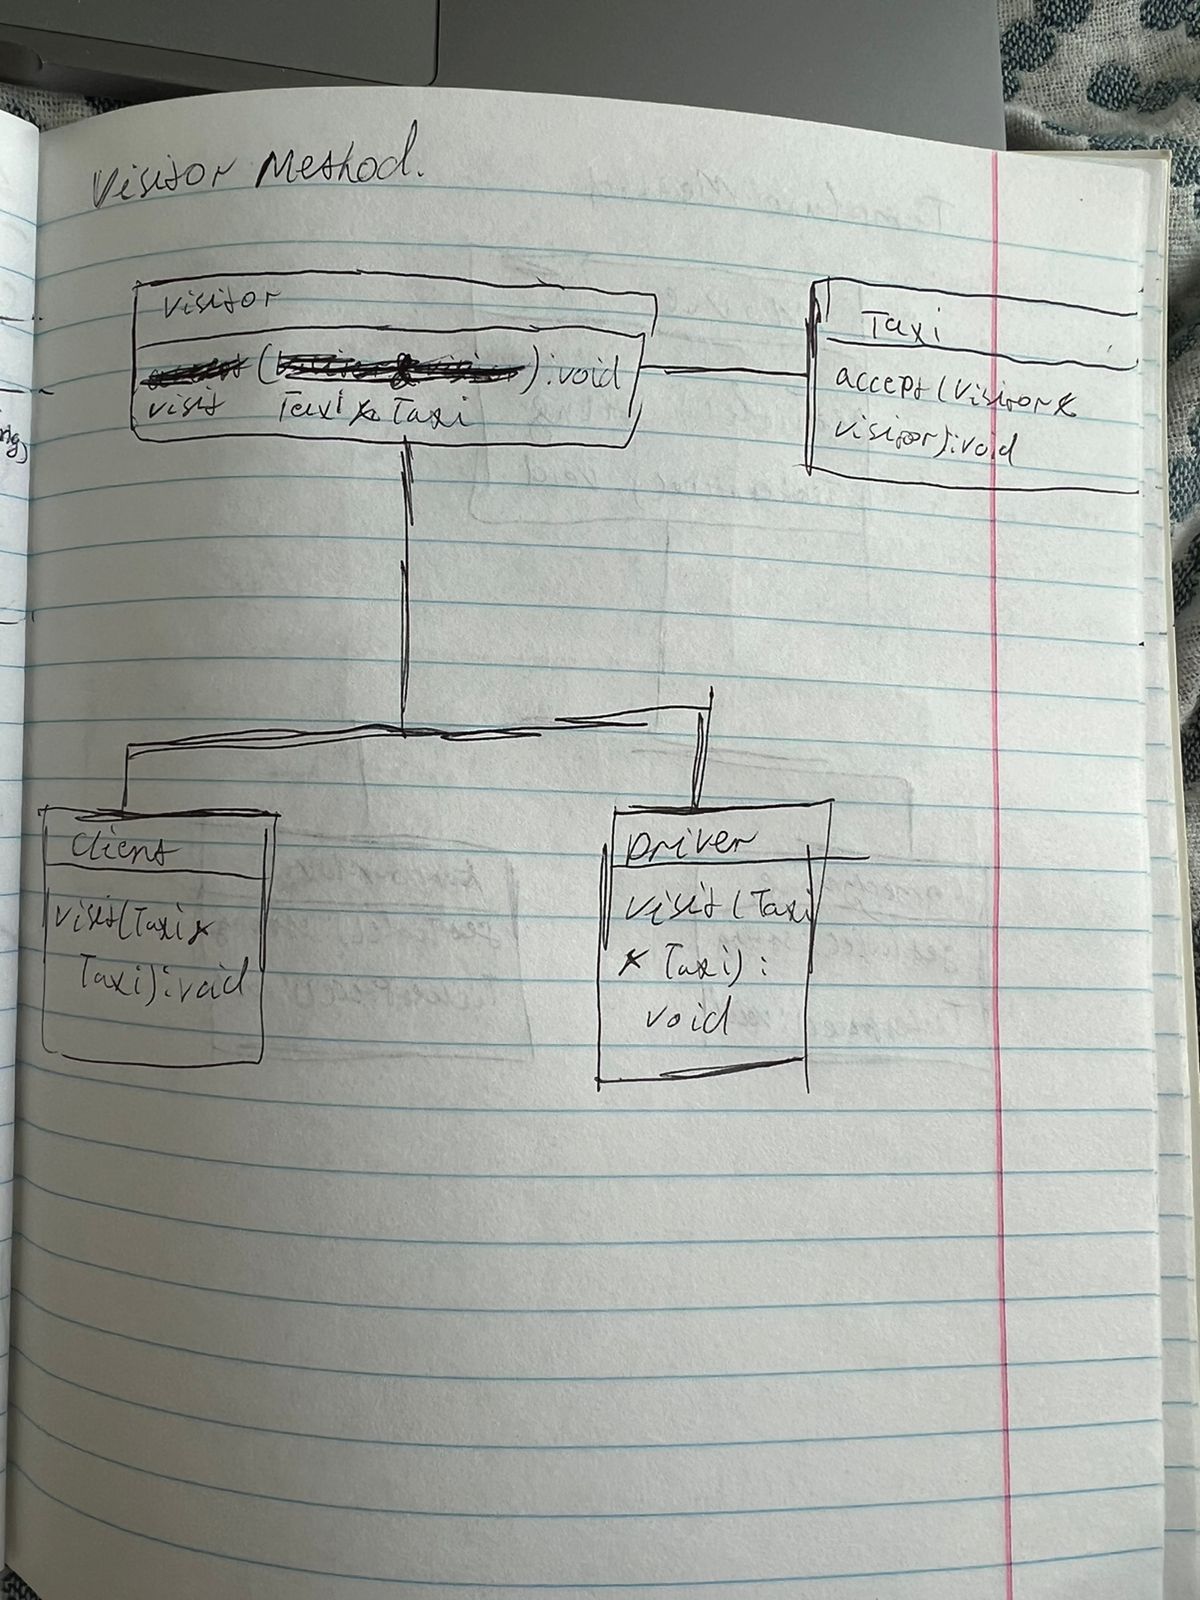 Visitor Method.
Visitor
( ) : void
visit Taxi * Taxi
Taxi
accept (Visitor *
visitor) : void
Client
visit (Taxi *
Taxi) : void
Driver
visit (Taxi
* Taxi) :
void